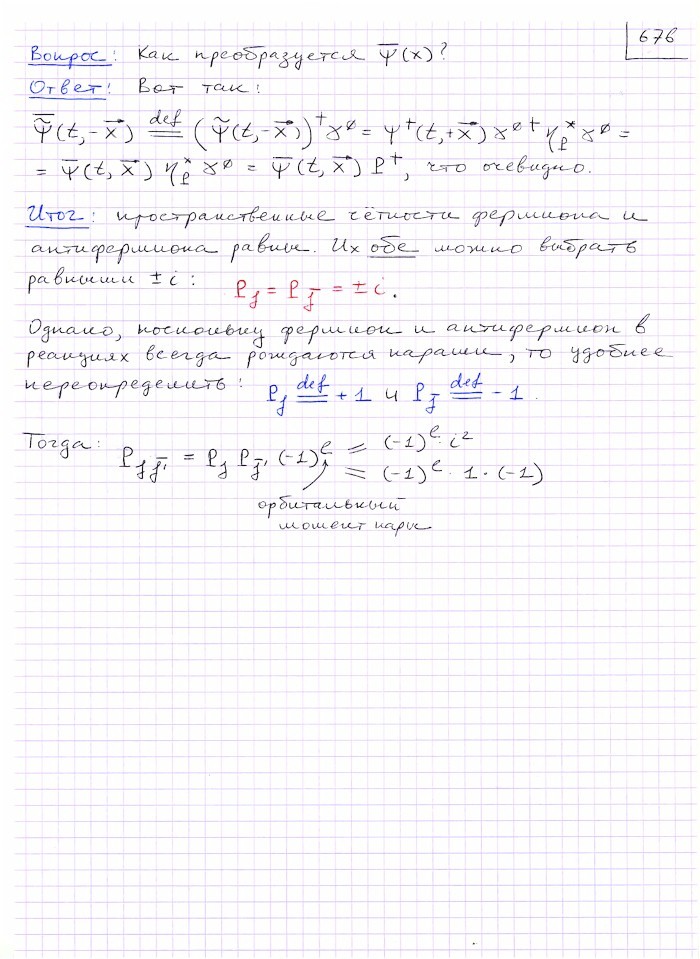 67б
Вопрос: Как преобразуется ψ̄(x)?
Ответ: Вот так:
ψ̃̄(t,-x⃗) =def= (ψ̃(t,-x⃗))⁺γ⁰ = ψ⁺(t,+x⃗)γ⁰⁺ η*_P γ⁰ =
= ψ̄(t,x⃗) η*_P γ⁰ = ψ̄(t,x⃗) P⁺, что очевидно.
Итог: пространственные чётности фермиона и
антифермиона равны. Их обе можно выбрать
равными ± i:
P_f = P_f̄ = ± i.
Однако, поскольку фермион и антифермион в
реакциях всегда рождаются парами, то удобнее
переопределить: P_f =def= +1 и P_f̄ =def= -1.
Тогда: P_ff̄' = P_f P_f̄' (-1)^ℓ = (-1)^ℓ · i²
= (-1)^ℓ · 1 · (-1)
орбитальный
момент пары